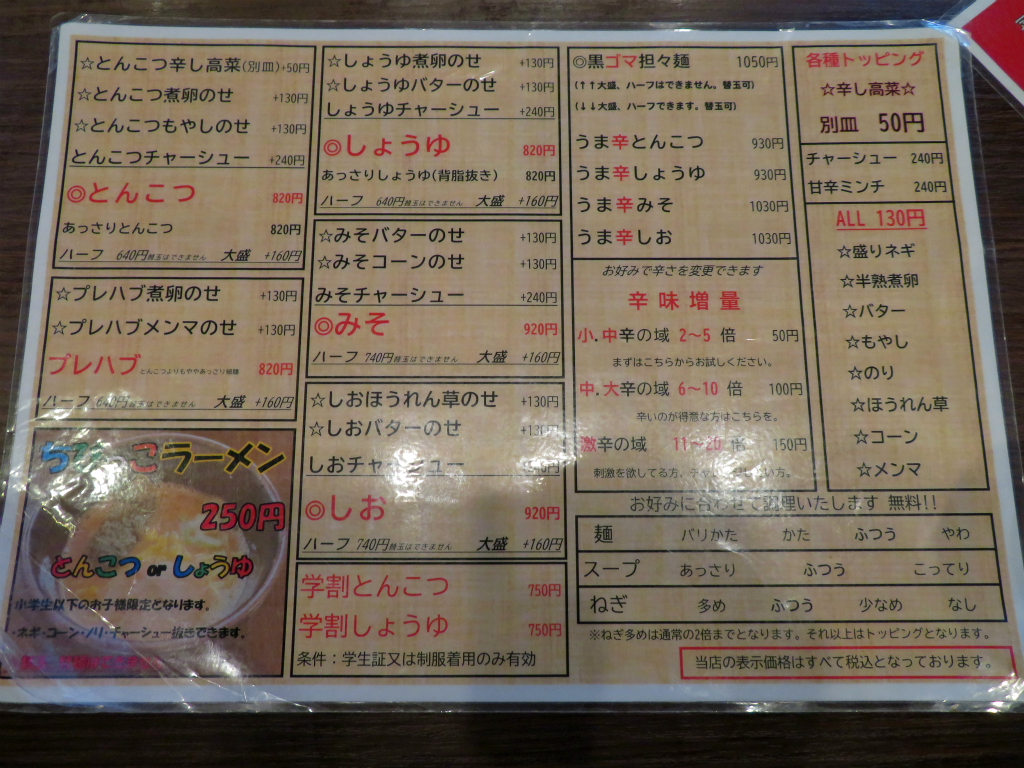 ☆とんこつ辛し高菜(別皿)+50円
☆とんこつ煮卵のせ +130円
☆とんこつもやしのせ +130円
とんこつチャーシュー +240円
◎とんこつ 820円
あっさりとんこつ 820円
ハーフ 640円替玉はできません 大盛 +160円
☆プレハブ煮卵のせ +130円
☆プレハブメンマのせ +130円
プレハブ とんこつよりもややあっさり細麺 820円
ハーフ 640円替玉はできません 大盛 +160円
ラーメン
250円
とんこつ or しょうゆ
小学生以下のお子様限定となります。
・ネギ・コーン・ノリ・チャーシュー抜きできます。
☆しょうゆ煮卵のせ +130円
☆しょうゆバターのせ +130円
しょうゆチャーシュー +240円
◎しょうゆ 820円
あっさりしょうゆ(背脂抜き) 820円
ハーフ 640円替玉はできません 大盛 +160円
☆みそバターのせ +130円
☆みそコーンのせ +130円
みそチャーシュー +240円
◎みそ 920円
ハーフ 740円替玉はできません 大盛 +160円
☆しおほうれん草のせ +130円
☆しおバターのせ +130円
しおチャーシュー
◎しお 920円
ハーフ 740円替玉はできません 大盛 +160円
学割とんこつ 750円
学割しょうゆ 750円
条件：学生証又は制服着用のみ有効
◎黒ゴマ担々麺 1050円
(↑↑大盛、ハーフはできません。替玉可)
(↓↓大盛、ハーフできます。替玉可)
うま辛とんこつ 930円
うま辛しょうゆ 930円
うま辛みそ 1030円
うま辛しお 1030円
お好みで辛さを変更できます
辛味増量
小.中辛の域 2～5 倍 50円
まずはこちらからお試しください。
中.大辛の域 6～10 倍 100円
辛いのが得意な方はこちらを。
激辛の域 11～20 倍 150円
刺激を欲してる方、
各種トッピング
☆辛し高菜☆
別皿 50円
チャーシュー 240円
甘辛ミンチ 240円
ALL 130円
☆盛りネギ
☆半熟煮卵
☆バター
☆もやし
☆のり
☆ほうれん草
☆コーン
☆メンマ
お好みに合わせて調理いたします 無料!!
麺 バリかた かた ふつう やわ
スープ あっさり ふつう こってり
ねぎ 多め ふつう 少なめ なし
※ねぎ多めは通常の2倍までとなります。それ以上はトッピングとなります。
当店の表示価格はすべて税込となっております。